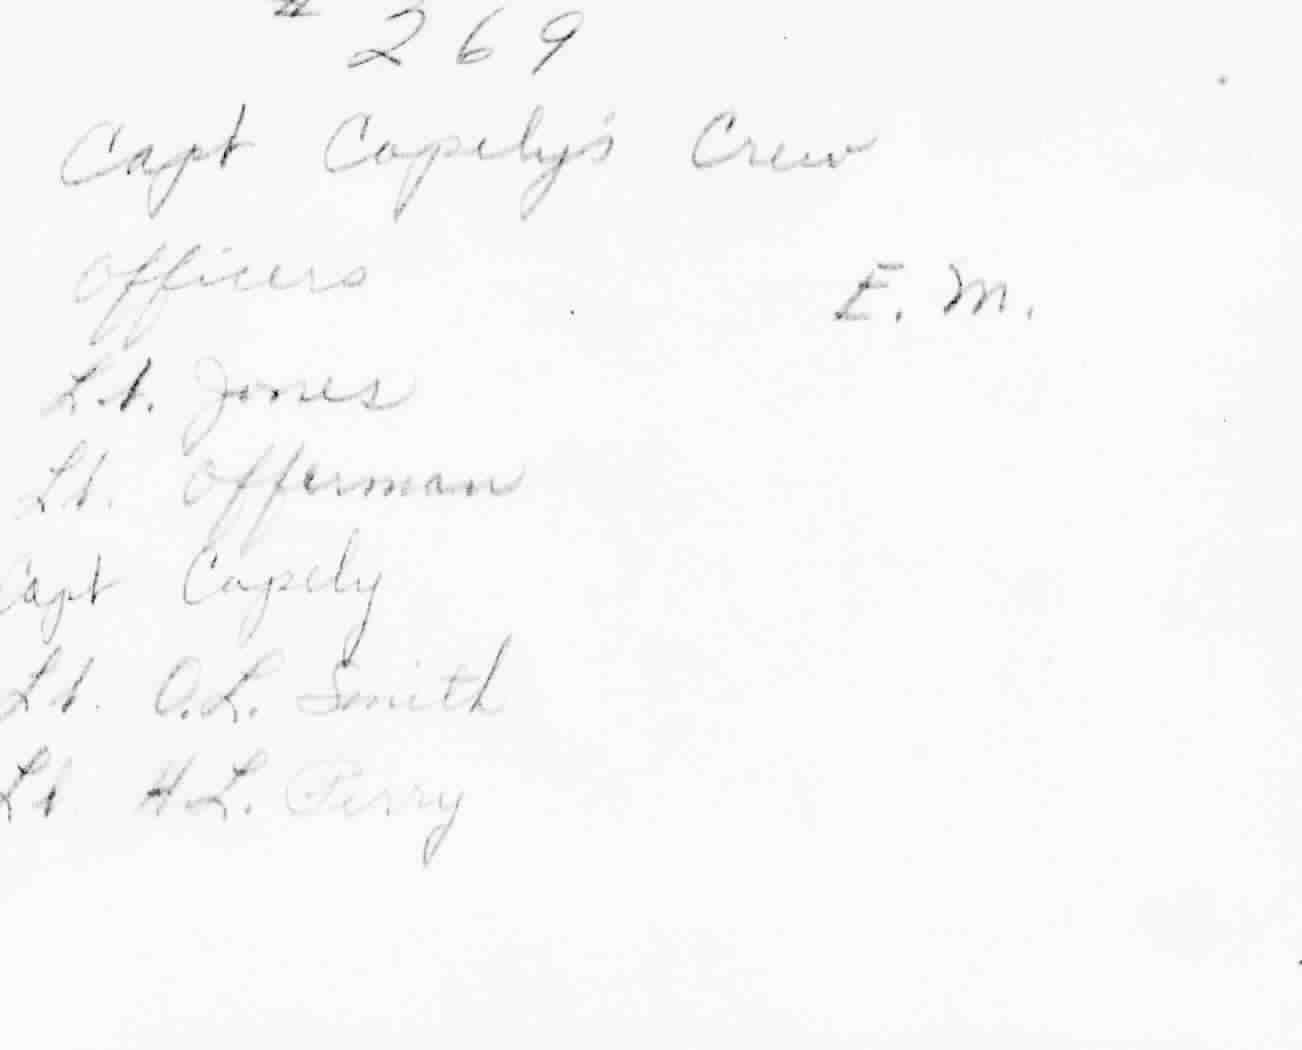 # 269
Capt Copely's Crew
Officers
E. M.
Lt. Jones
Lt. Offerman
Capt Copely
Lt. O.L. Smith
Lt. H.L. Perry